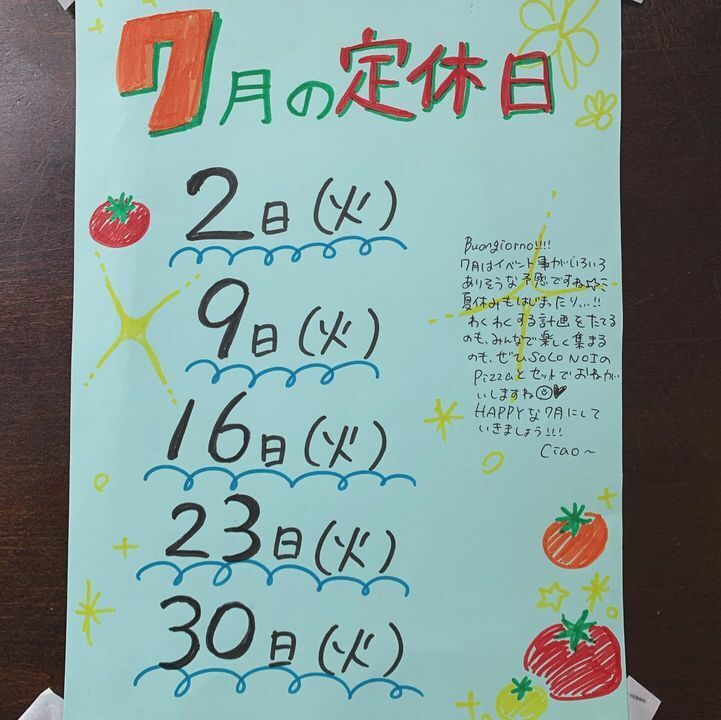 7月の定休日
2日(火)
9日(火)
16日(火)
23日(火)
30日(火)
Buongiorno!!!!
7月はイベント事がいろいろ
ありそうな予感ですね☆ミ
夏休みもはじまったり...!!
わくわくする計画をたてる
のも、みんなで楽しく集まる
のも、ぜひSOLO NOIの
Pizzaとセットでおねが
いしますね☺♥
HAPPYな7月にして
いきましょう!!!
Ciao~